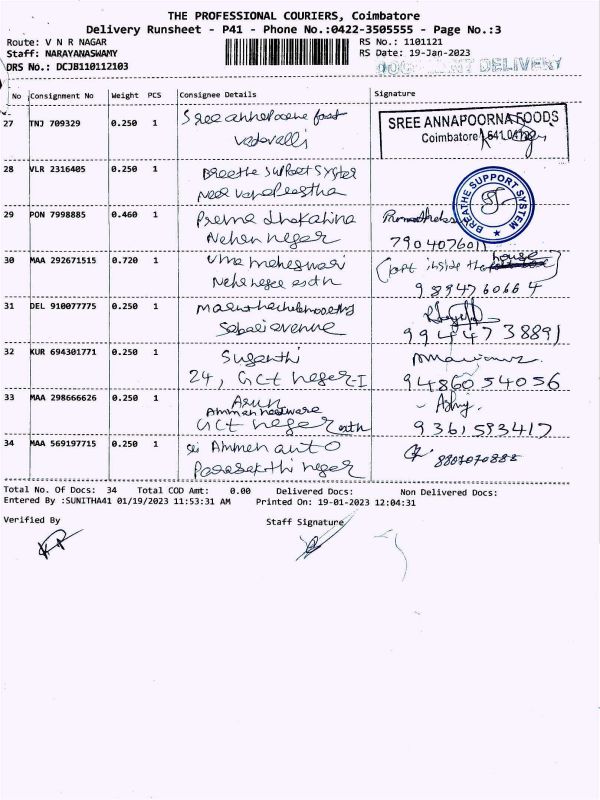 THE PROFESSIONAL COURIERS, Coimbatore
Delivery Runsheet - P41 - Phone No.:0422-3505555 - Page No.:3
Route: V N R NAGAR RS No.: 1101121
Staff: NARAYANASWAMY RS Date: 19-Jan-2023
DRS No.: DCJB110112103 DELIVERY
No Consignment No Weight PCS Consignee Details Signature
27 TNJ 709329 0.250 1 Sree annapoorna food SREE ANNAPOORNA FOODS
vadavalli Coimbatore
28 VLR 2316405 0.250 1 Breathe Support System BREATHE SUPPORT SYSTEM
Near
29 PON 7998885 0.460 1 Prema
Nehru nagar 7904076011
30 MAA 292671515 0.720 1 Uma maheswari inside the house
9894760664
31 DEL 910077775 0.250 1
avenue 9944738891
32 KUR 694301771 0.250 1 Suganthi
24, GCT nagar-I 9486054056
33 MAA 298666626 0.250 1 Arun
Amman hardware
GCT nagar 9361593417
34 MAA 569197715 0.250 1 Sri Amman auto 8807070888
Parasakthi nagar
Total No. Of Docs: 34 Total COD Amt: 0.00 Delivered Docs: Non Delivered Docs:
Entered By :SUNITHA41 01/19/2023 11:53:31 AM Printed On: 19-01-2023 12:04:31
Verified By Staff Signature